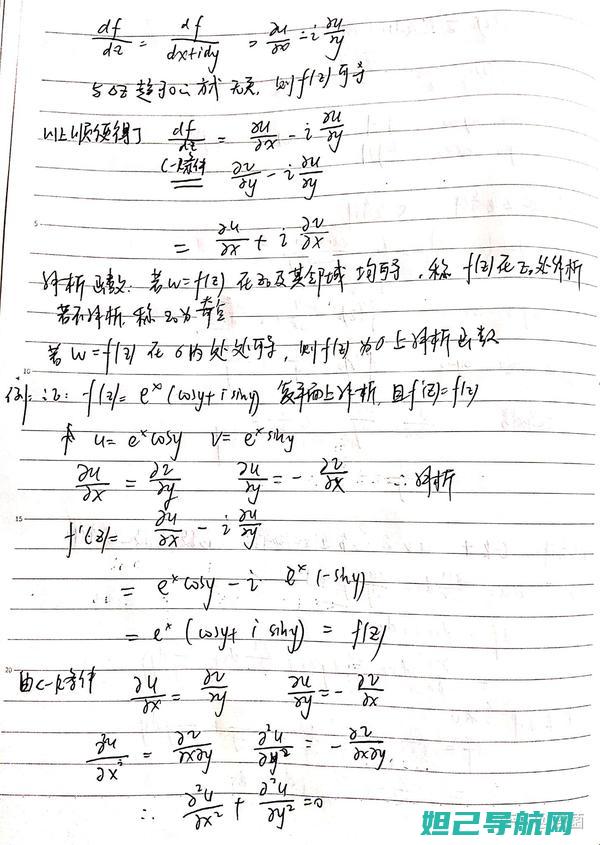 df/dz = df/(dx+idy) = ∂u/∂x - i ∂u/∂y
与Δz趋于0的方式无关, 则f(z)可导
以上顺便得了 df/dz = ∂u/∂x - i ∂u/∂y
C-R条件 ∂v/∂y - i ∂u/∂y
5
= ∂u/∂x + i ∂v/∂x
解析函数: 若w=f(z) 在z₀及其邻域 均可导, 称 f(z)在z₀处解析
若不解析, 称z₀为奇点
若 w=f(z) 在 σ内处处可导, 则f(z)为σ上解析函数
10
例: 证: f(z)= eˣ(cosy+isiny) 复平面上解析, 且f'(z)=f(z)
u= eˣcosy v= eˣsiny
∂u/∂x = ∂v/∂y ∂u/∂y = - ∂v/∂x ∴解析
15
f'(z)= ∂u/∂x - i ∂u/∂y
= eˣcosy - i eˣ(-siny)
= eˣ(cosy+ i siny) = f(z)
20
由C-R条件 ∂u/∂x = ∂v/∂y ∂u/∂y = - ∂v/∂x
∂²u/∂x² = ∂v/∂x∂y ∂²u/∂y² = - ∂v/∂x∂y.
∴ ∂²u/∂x² + ∂²u/∂y² =0
妲己导航网